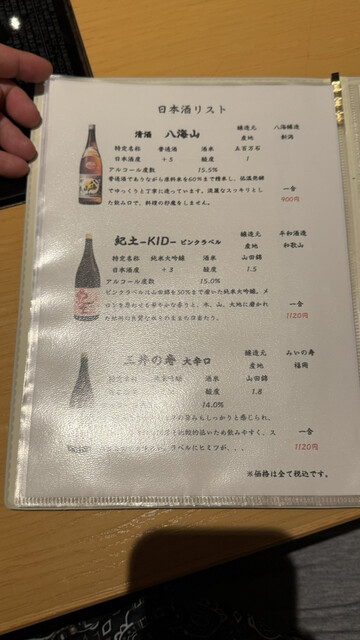 日本酒リスト
清酒 八海山 醸造元 八海醸造
産地 新潟
特定名称 普通酒 酒米 五百万石
日本酒度 +5 酸度 1
アルコール度数 15.5%
普通酒でありながら原料米を60%まで精米し、低温発酵
でゆっくりと丁寧に造っています。淡麗なスッキリとし
た飲み口で、料理の邪魔をしません。
一合
900円
紀土-KID- ピンクラベル 醸造元 平和酒造
産地 和歌山
特定名称 純米大吟醸 酒米 山田錦
日本酒度 +3 酸度 1.5
アルコール度数 15.0%
ピンクラベルは山田錦を50%まで磨いた純米大吟醸。メ
ロンを思わせる華やかな香りと、米、山、大地に磨かれ
一合
1120円
三井の寿 大辛口 醸造元 みいの寿
産地 福岡
酒米 山田錦
酸度 1.8
14.0%
旨みもしっかりと感じられ、
比較的低いため飲みやすく、ス
ラベルにヒミツが、、、
一合
1120円
※価格は全て税込です。